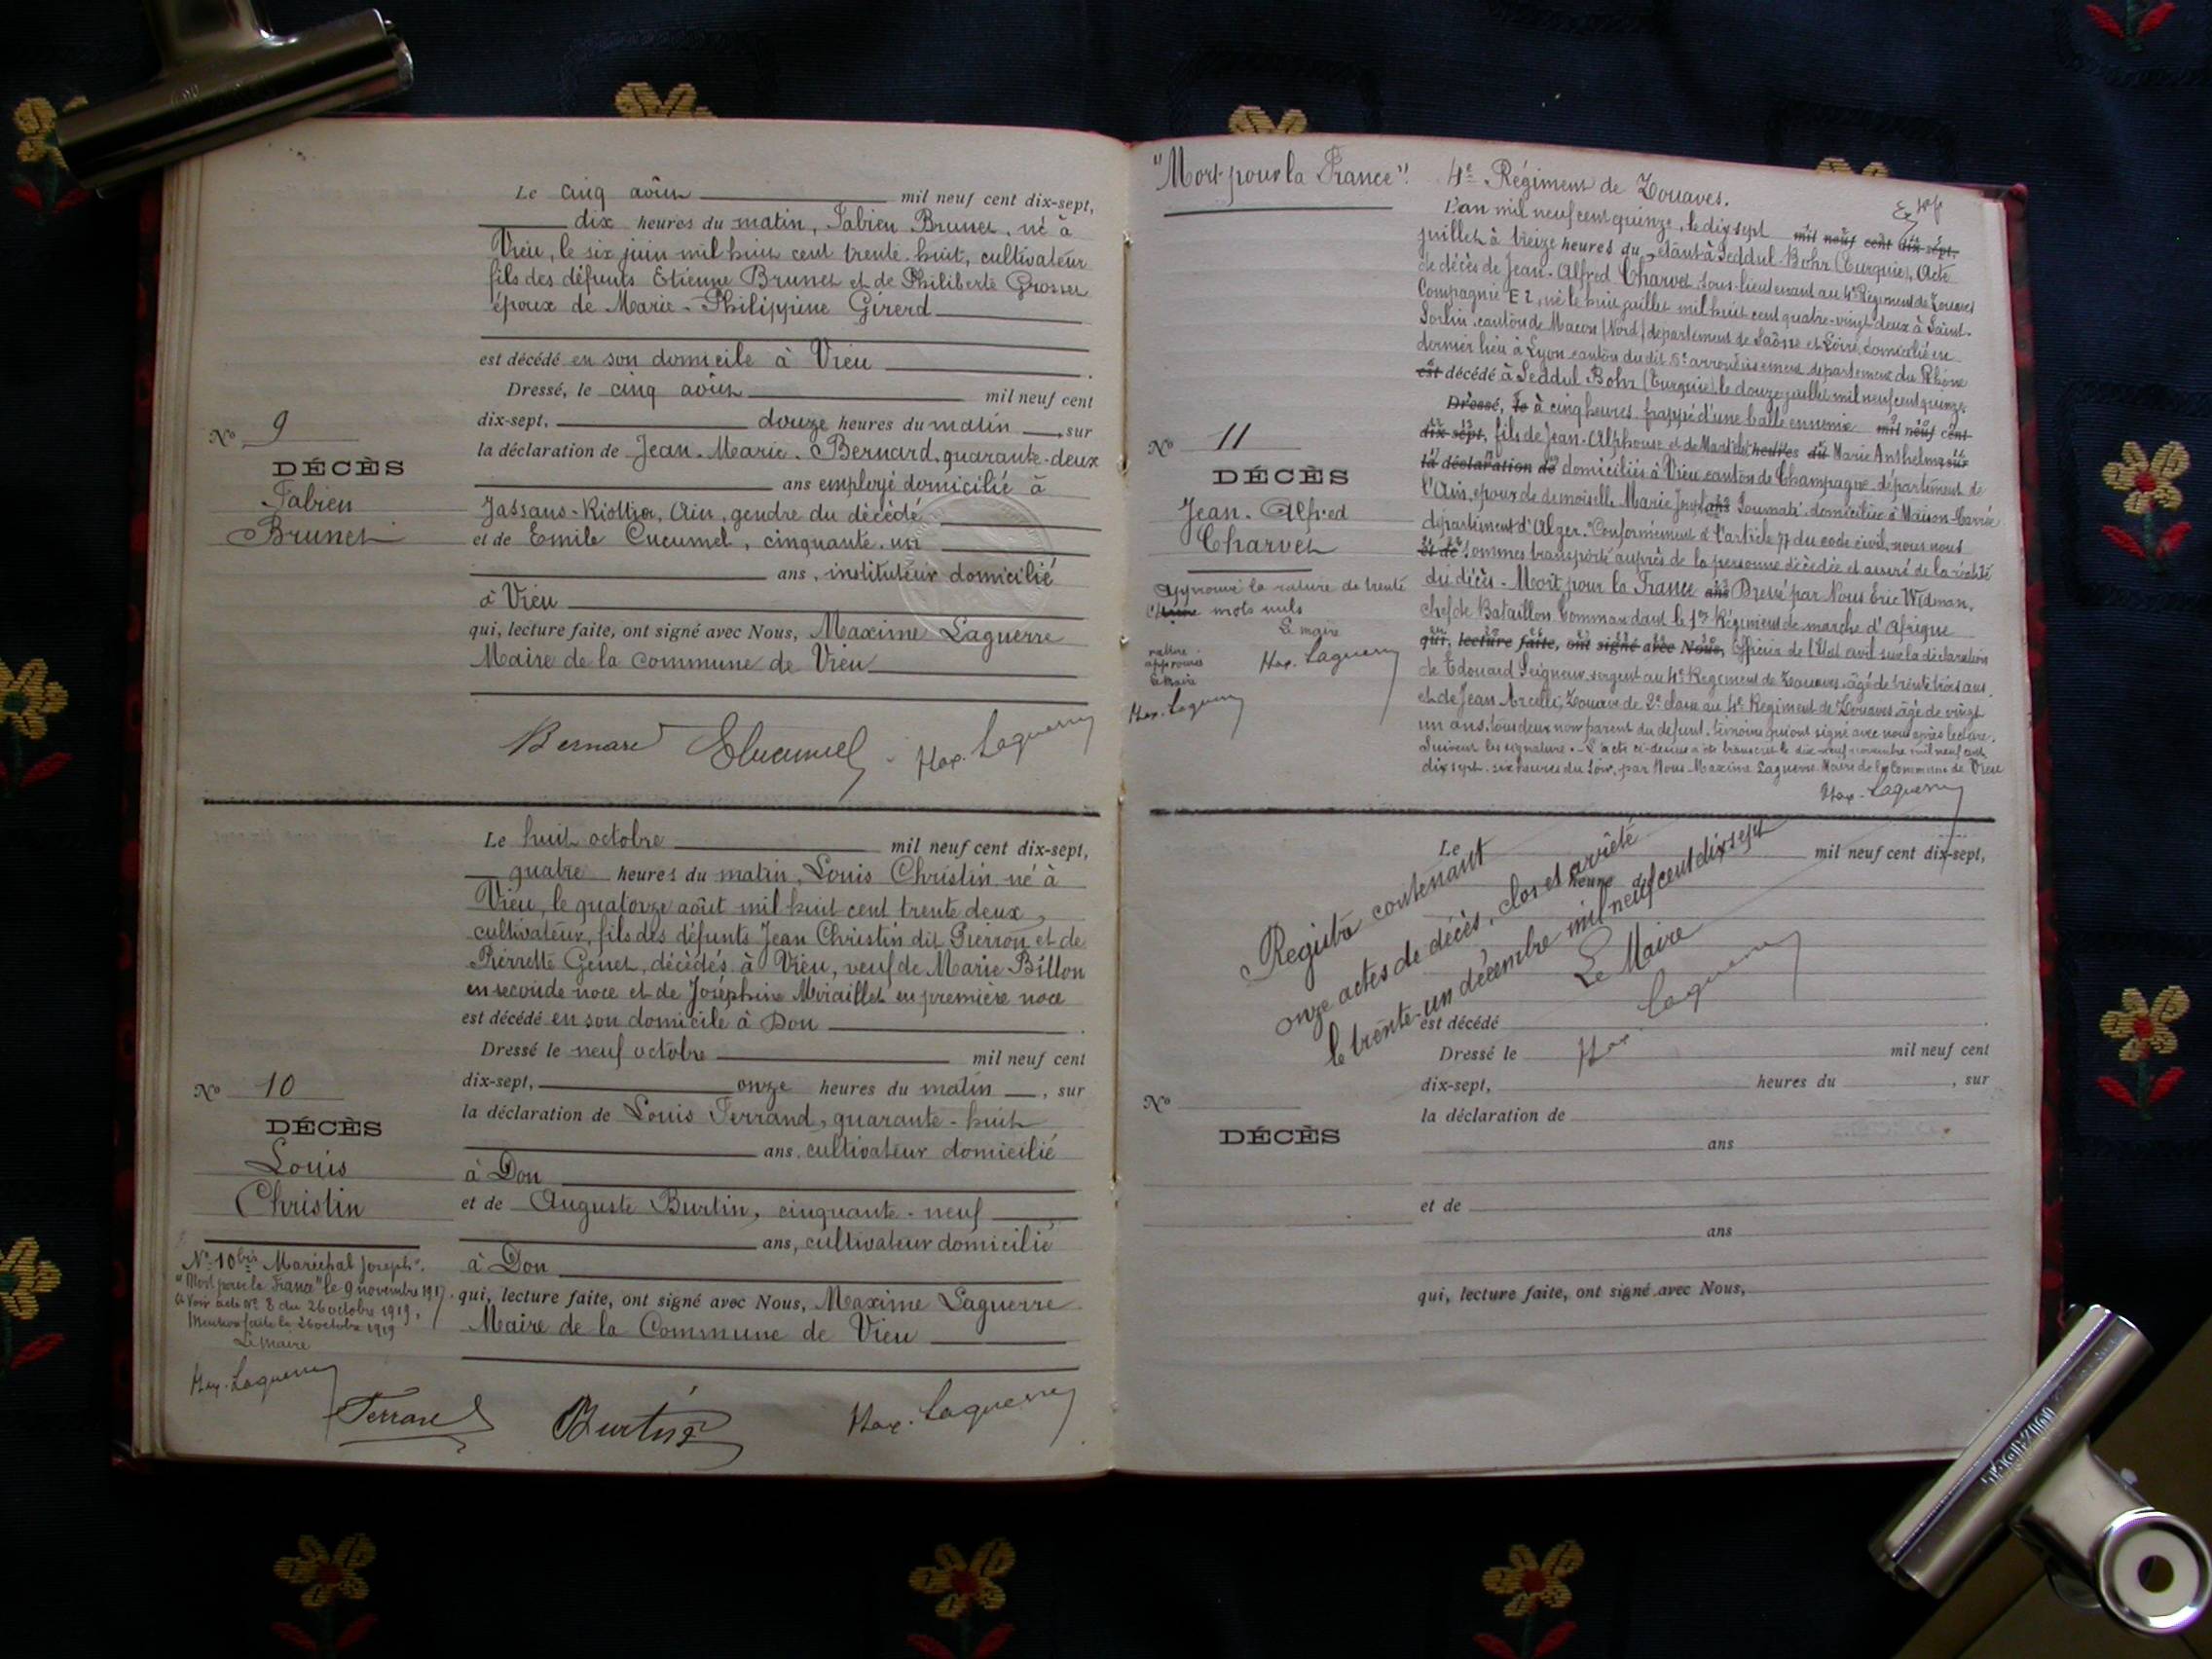 Le cinq août mil neuf cent dix-sept,
dix heures du matin, Fabien Brunet, né à
Vieu, le six juin mil huit cent trente-huit, cultivateur
fils des défunts Etienne Brunet et de Philiberte Grosset
époux de Marie-Philippine Girerd
est décédé en son domicile à Vieu
Dressé, le cinq août mil neuf cent
dix-sept, douze heures du matin, sur
No 9
la déclaration de Jean-Marie-Bernard, quarante-deux
DÉCÈS
ans employé domicilié à
Fabien
Jassans-Riottier, Ain, gendre du décédé
Brunet
et de Emile Cucumel, cinquante-un
ans, instituteur domicilié
à Vieu
qui, lecture faite, ont signé avec Nous, Maxime Laguerre
Maire de la commune de Vieu
Bernard ECucumel Max. Laguerre
Le huit octobre mil neuf cent dix-sept,
quatre heures du matin, Louis Christin, né à
Vieu, le quatorze août mil huit cent trente deux,
cultivateur, fils des défunts Jean Christin dit Pierron et de
Pierrette Genet, décédés à Vieu, veuf de Marie Billon
en seconde noce et de Joséphine Miraillet en première noce
est décédé en son domicile à Don
Dressé le neuf octobre mil neuf cent
dix-sept, onze heures du matin, sur
No 10
la déclaration de Louis Ferrand, quarante-huit
DÉCÈS
ans, cultivateur domicilié
Louis
à Don
Christin
et de Auguste Burtin, cinquante-neuf
ans, cultivateur domicilié
à Don
qui, lecture faite, ont signé avec Nous, Maxime Laguerre
Maire de la Commune de Vieu
No 10 bis Maréchal Joseph.
"Mort pour la France" le 9 novembre 1917.
Voir acte No 8 du 26 octobre 1919.
Mention faite le 26 octobre 1919
Le Maire
Max. Laguerre
Ferrand Burtin Max. Laguerre
"Mort pour la France".
4e Régiment de Zouaves.
L'an mil neuf cent quinze, le dix sept mil neuf cent dix-sept,
juillet à treize heures du étant à Seddul-Bohr (Turquie), Acte
de décès de Jean-Alfred Charvet sous-lieutenant au 4e Régiment de Zouaves
Compagnie E 2, né le huit juillet mil huit cent quatre-vingt deux à Saint-
Sorlin, canton de Macon (Nord) département de Saône et Loire, domicilié en
dernier lieu à Lyon canton du dit 6e arrondissement département du Rhône
est décédé à Seddul Bohr (Turquie), le douze juillet mil neuf cent quinze
Dressé, le à cinq heures, frappé d'une balle ennemie mil neuf cent
dix-sept, fils de Jean-Alphonse et de heures du Marie Anthelme sur
la déclaration de domiciliés à Vieu canton de Champagne département de
l'Ain, époux de demoiselle Marie ans domiciliée à Maison-Carrée
département d'Alger. Conformément à l'article 77 du code civil, nous nous
et de sommes transporté auprès de la personne décédée et assuré de la réalité
du décès - Mort pour la France ans Dressé par Nous Eric Widman,
chef de Bataillon Commandant le 1er Régiment de marche d'Afrique
qui, lecture faite, ont signé avec Nous, Officier de l'Etat civil sur la déclaration
de Edouard Seigneur, sergent au 4e Régiment de Zouaves, âgé de trente trois ans,
et de Jean Arcelli, Zouave de 2e classe au 4e Régiment de Zouaves âgé de vingt
un ans, tous deux non parent du défunt, témoins qui ont signé avec nous après lecture.
Suivent les signatures. - L'acte ci-dessus a été transcrit le dix-neuf novembre mil neuf cent
dix sept, six heures du soir, par Nous Maxime Laguerre Maire de la Commune de Vieu
Max. Laguerre
No 11
DÉCÈS
Jean-Alfred
Charvet
Approuvé la rature de trente
mots nuls
Le maire
Max. Laguerre
rature
approuvée
Le Maire
Max. Laguerre
Le mil neuf cent dix-sept,
heure du
Registre contenant
onze actes de décès, clos et arrêté
le trente-un décembre mil neuf cent dix sept
Le Maire
Max Laguerre
est décédé
Dressé le mil neuf cent
dix-sept, heures du , sur
No
la déclaration de
DÉCÈS
ans
et de
ans
qui, lecture faite, ont signé avec Nous,